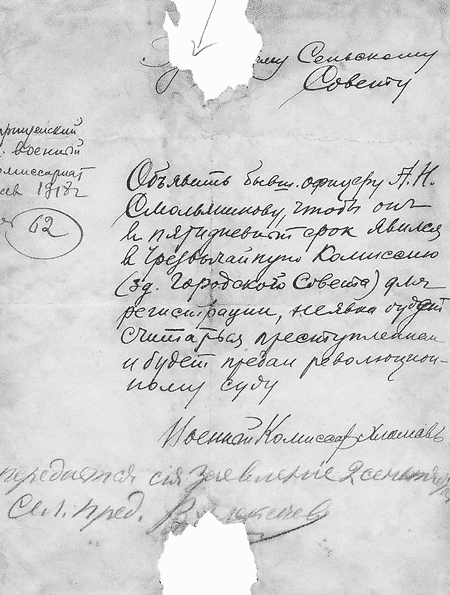 Сельскому
Совету
военный
1918 г
62
Объявить бывш. офицеру А.Н.
Смольянинову, чтобы он
в пятидневный срок явился
в Чрезвычайную Комиссию
(зд. Городского Совета) для
регистрации, неявка будет
считаться преступлением
и будет предан революцион-
ному суду
Военный Комиссар
передается сия заявление 2 сентяб
Сел. пред.